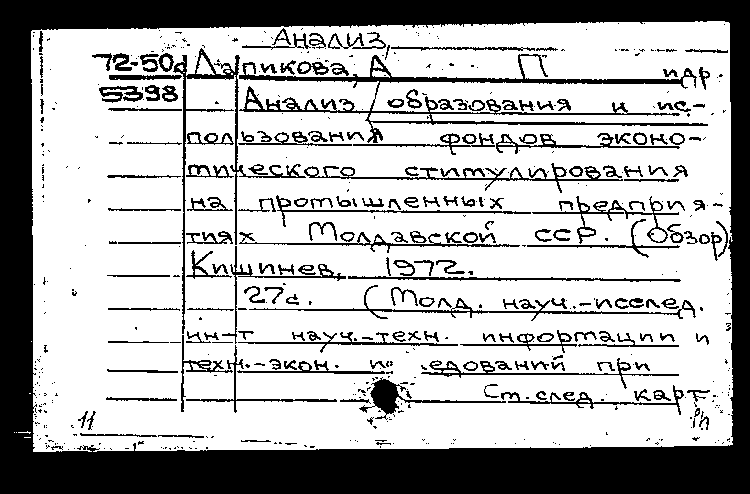 Анализ,
72-50d Лапикова, А П идр.
5398 Анализ образования и ис-
пользования фондов эконо-
мического стимулирования
на промышленных предприя-
тиях Молдавской ССР. (Обзор)
Кишинев, 1972.
27с. (Молд. науч.-исслед.
ин-т науч.-техн. информации и
техн.-экон. едований при
См. след. карт.
11